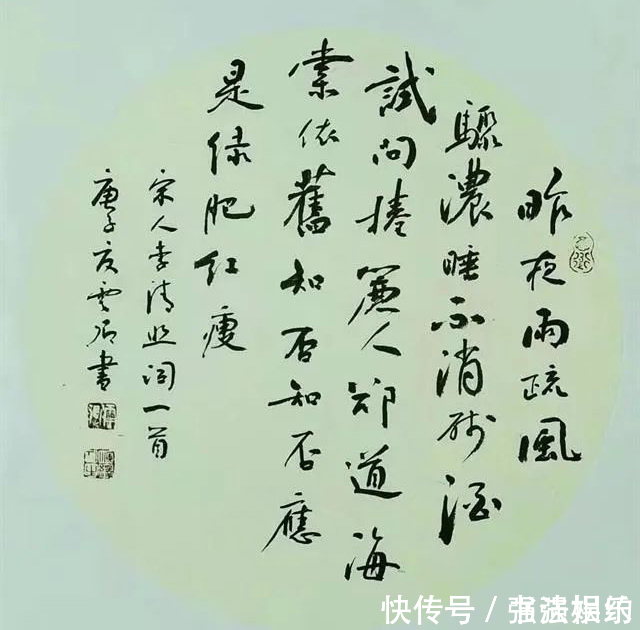 昨夜雨疏風
驟濃睡不消殘酒
試問捲簾人郤道海
棠依舊知否知否應
是綠肥紅瘦
宋人李清照詞一首
庚子夏雲書
快传号／